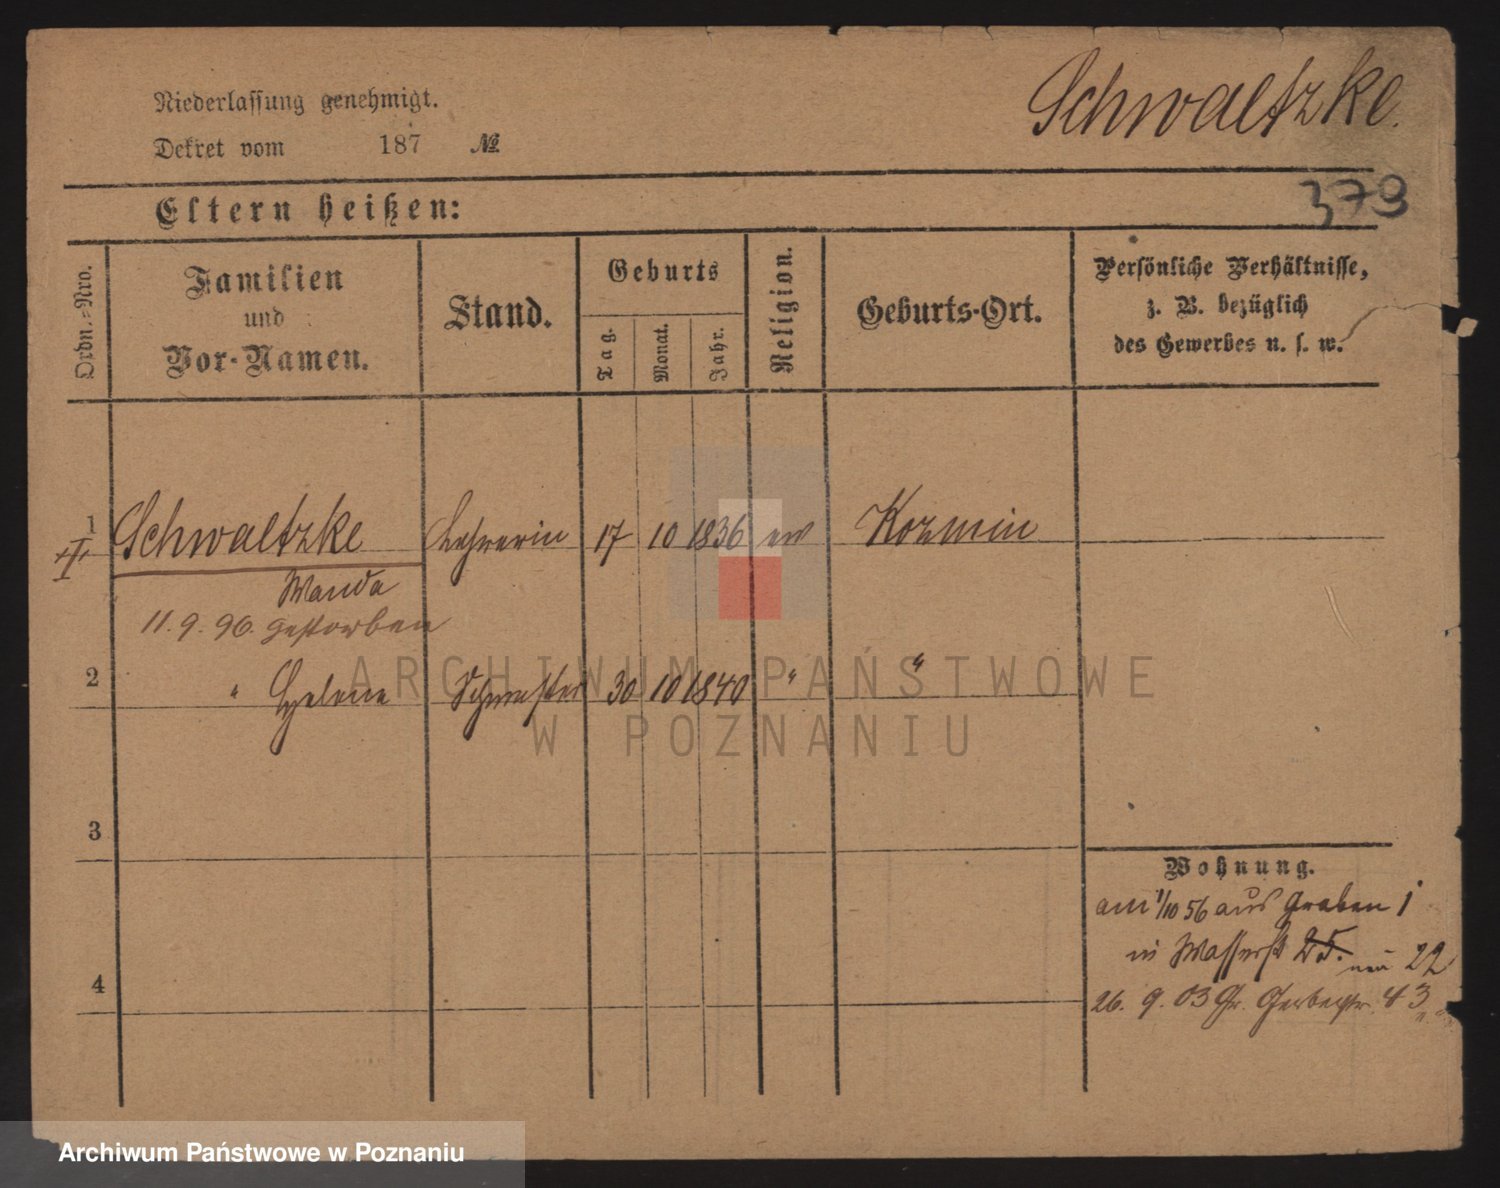 Niederlassung genehmigt.
Schwaltzke.
Dekret vom 187 №
379
Eltern heißen:
Ordn.-Nro.
Familien
und
Vor-Namen.
Stand.
Geburts
Tag.
Monat.
Jahr.
Religion.
Geburts-Ort.
Persönliche Verhältnisse,
z. B. bezüglich
des Gewerbes u. s. w.
1 Schwaltzke Lehrerin 17 10 1836 ev Kozmin
Wanda
11. 9. 96. gestorben
2 " Helene Schwester 30 10 1840 " "
3
Wohnung.
am 1/10 56 aus Graben 1
in Wasserst 25. neu 22
4
26. 9. 03 Gr. Gerberstr. 43
ARCHIWUM PAŃSTWOWE
W POZNANIU
Archiwum Państwowe w Poznaniu